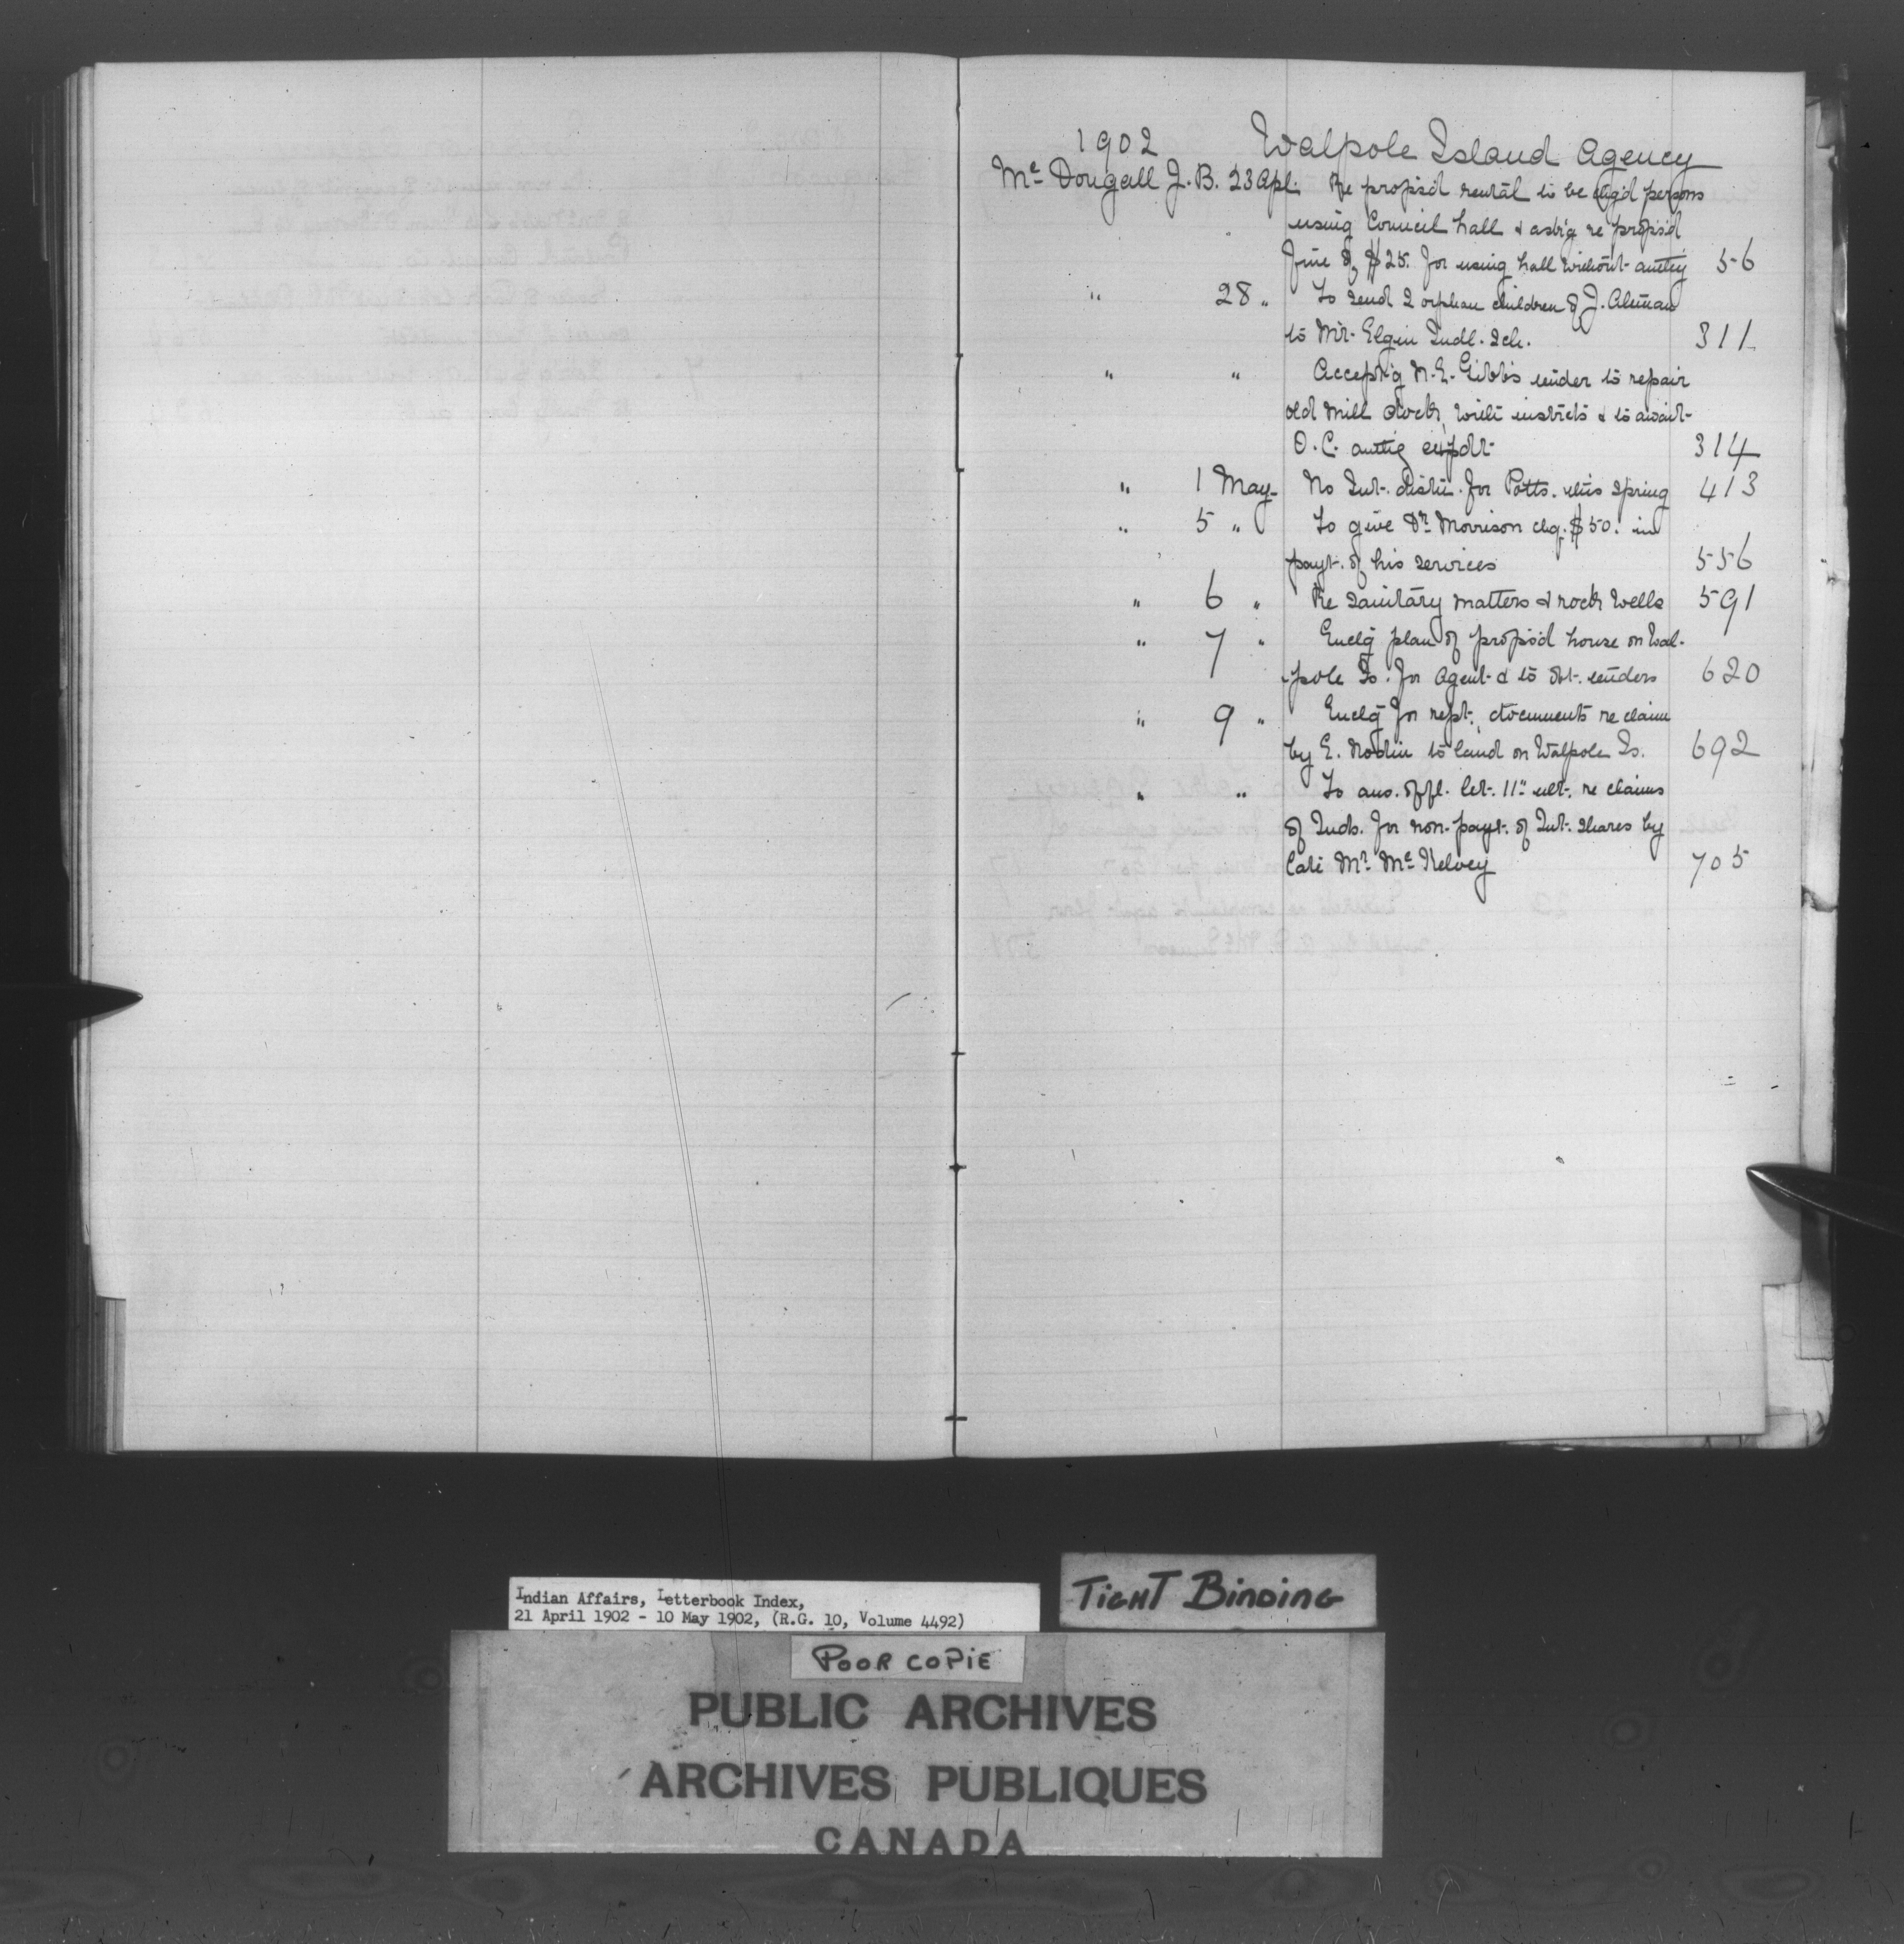 1902 Walpole Island Agency
Mc Dougall J. B. 23 Apl. Re propsd rental to be chgd persons
using Council hall & ask'g re propsd
fine of $25. for using hall without authy 56
" 28 " To send 2 orphan children of J. Altman
to Mt. Elgin Indl. Sch. 311
" " Accept'g N. E. Gibb's tender to repair
old mill dock, with instrcts & to await
O. C. authg expdr. 314
" 1 May No Int. distn. for Potts. this Spring 413
" 5 " To give Dr. Morrison chq. $50. in
payt. of his services 556
" 6 " Re Sanitary matters & rock wells 591
" 7 " Enclg plan of propsd house on Wal-
pole Is. for Agent & to obt. tenders 620
" 9 " Enclg for rept. documents re claim
by E. Nodin to land on Walpole Is. 692
" " To ans. offl. let. 11" ult. re claims
of Inds. for non-payt. of Int. Shares by
late Mr. Mc Kelvey 705
Indian Affairs, Letterbook Index,
21 April 1902 - 10 May 1902, (R.G. 10, Volume 4492)
TIGHT BINDING
POOR COPIE
PUBLIC ARCHIVES
ARCHIVES PUBLIQUES
CANADA